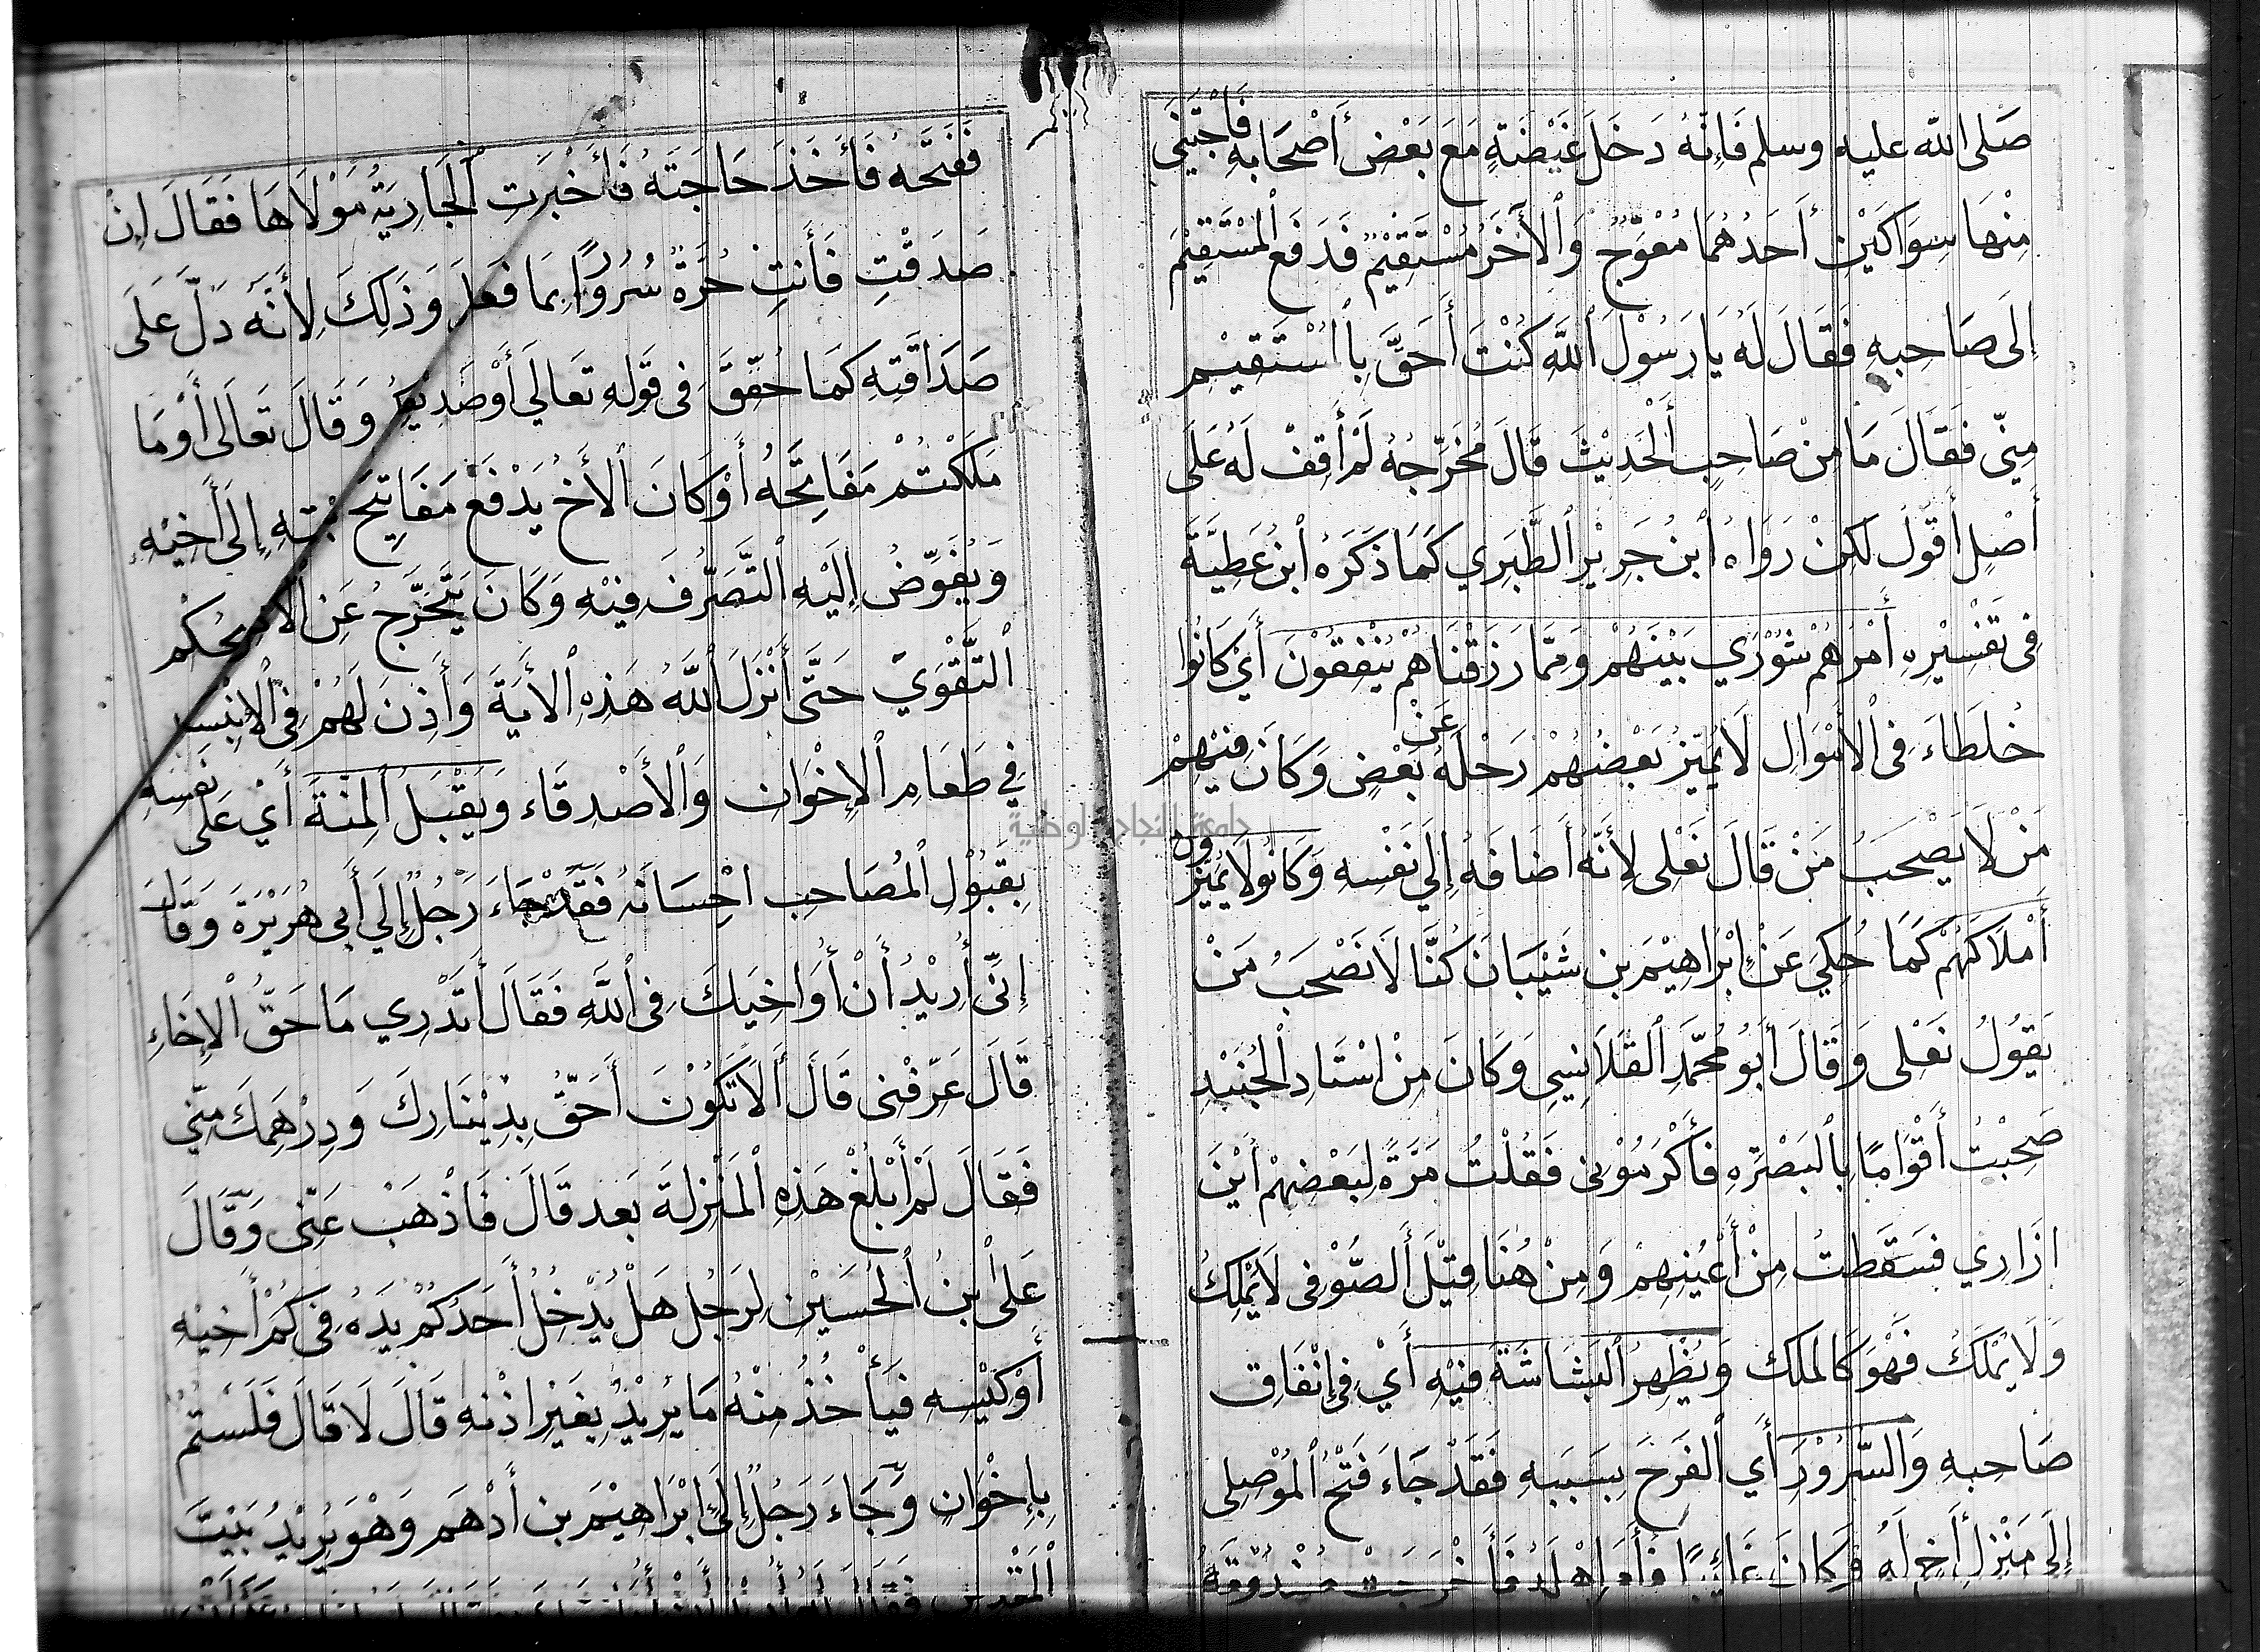 صَلى الله عليه وسلم فَإِنَّهُ دَخَلَ غَيْضَةٍ مَعَ بَعْضِ أَصْحَابِهِ فَاجْتَنَى
مِنْهَا سِوَاكَيْنِ أَحَدُهُمَا مُعْوَجٌّ وَالْآخَرُ مُسْتَقِيْمٌ فَدَفَعَ الْمُسْتَقِيْمَ
إِلَى صَاحِبِهِ فَقَالَ لَهُ يَا رَسُوْلَ اللَّهِ كُنْتَ أَحَقَّ بِالْمُسْتَقِيْمِ
مِنِّي فَقَالَ مَا مِنْ صَاحِبٍ الْحَدِيْثَ قَالَ مُخَرِّجُهُ لَمْ أَقِفْ لَهُ عَلَى
أَصْلٍ أَقُوْلُ لَكِنْ رَوَاهُ ابْنُ جَرِيْرٍ الطَّبَرِي كَمَا ذَكَرَهُ ابْنُ عَطِيَّةَ
فِي تَفْسْيْرِهِ أَمْرُهُمْ شُوْرَي بَيْنَهُمْ وَمِمَّا رَزَقْنَاهُمْ يُنْفِقُوْنَ أَيْ كَانُوا
خُلَطَاءَ فِى الْأَمْوَالِ لَا يُمَيِّزُ بَعْضُهُمْ رَحْلَهُ عَنْ بَعْضٍ وَكَانَ مِنْهُمْ
مَنْ لَا يَصْحَبُ مَنْ قَالَ نَعْلِى لِأَنَّهُ أَضَافَهُ إِلَي نَفْسِهِ وَكَانُوا لَا يُمَيِّزُونَ
أَمْلَاكَهُمْ كَمَا حُكِيَ عَنْ إِبْرَاهِيْمَ بن شَيْبَانَ كُنَّا لَا نَصْحَبُ مَنْ
يَقُوْلُ نَعْلِى وَقَالَ أَبُو مُحَمَّدٍ الْقَلَانِسِي وَكَانَ مِنْ اسْتَادِ الْجُنَيْدِ
صَحِبْتُ أَقْوَامًا بِالْبَصْرَهِ فَأَكْرَمُوْنِى فَقُلْتُ مَرَّةً لِبَعْضِهِمْ أَيْنَ
ازَارِي فَسَقَطْتُ مِنْ أَعْيُنِهِمْ وَمِنْ هُنَا قِيْلَ الصُّوْفِى لَا يَمْلِكُ
وَلَا يُمْلَكُ فَهْوَ كَالملك وَيُظْهِرُ الْبَشَاشَةَ فِيْهِ أَيْ فِي إِنْفَاقِ
صَاحِبِهِ وَالسُّرُوْرَ أَي الْفَرَحَ بِسَبَبِهِ فَقَدْ جَاءَ فَتْحُ الْمُوْصِلِى
إِلَى مَنْزِلِ أَخٍ لَهُ وَكَانَ غَائِبًا فَأَمَرَ اهْلَهُ فَأَخْرَجَتْ صُنْدُوْقَهُ
فَفَتَحَهُ فَأَخَذَ حَاجَتَهُ فَأَخْبَرَتِ الْجَارِيَةُ مَوْلَاهَا فَقَالَ إِنْ
صَدَقْتِ فَأَنتِ حُرَّةٌ سُرُوْرًا بِمَا فَعَلَ وَذَلِكَ لِأَنَّهُ دَلَّ عَلَى
صَدَاقَتِهِ كَمَا حُقِّقَ فِى قَوْلِهِ تَعَالَي أَوْ صَدِيْقِكُمْ وَقَالَ تَعَالَى أَوْ مَا
مَلَكْتُمْ مَفَاتِحَهُ أَوْ كَانَ الْأَخُ يَدْفَعُ مَفَاتِيْحَ بَيْتِهِ إِلَى أَخِيْهِ
وَيُفَوِّضُ إِلَيْهِ التَّصَرُّفَ فِيْهِ وَكَانَ يَتَحَرَّجُ عَنِ الْأَمْرِ بِحُكْمِ
التَّقْوَيَ حَتَّى أَنْزَلَ اللَّهُ هَذِهِ الْأَيَةَ وَأَذِنَ لَهُمْ فِى
فِي طَعَامِ الْإِخْوَانِ وَالْأَصْدِقَاء وَيَقْبَلُ الْمِنَّةَ أَيْ عَلَى نَفْسِهِ
بِقَبُوْلِ الْمُصَاحِبِ احْسَانَهُ فَقَدْ جَاءَ رَجُلٌ إِلَي أَبِي هُرَيْرَةَ وَقَالَ
إِنِّى أُرِيْدُ أَنْ أُوَاخِيَكَ فِى اللَّهِ فَقَالَ أَتَدْرِي مَا حَقُّ الْإِخَاءِ
قَالَ عَرِّفْنِى قَالَ أَلَا تَكُوْنَ أَحَقَّ بِدِيْنَارِكَ وَدِرْهَمِكَ مِنِّي
فَقَالَ لَمْ أَبْلُغْ هَذِهِ الْمَنْزِلَةَ بَعد قَالَ فَاذْهَبْ عَنِّى وَقَالَ
عَلَىْ بْنُ الْحُسَيْنِ لِرَجُلٍ هَلْ يُدْخِلُ أَحَدُكُمْ يَدَهُ فِى كُمِّ أَخِيْهِ
أَوْ كَيْسِهِ فَيَأْخُذُ مِنْهُ مَا يُرِيْدُ بِغَيْرِ اذْنِهِ قَالَ لَا قَالَ فَلَسْتُمْ
بِإِخْوَانٍ وَجَاءَ رَجُلٌ إِلَى إِبْرَاهِيْمَ بن أَدْهَم وَهْوَ يُرِيْدُ بَيْتَ
الْمَقْدِسِ فَقَالَ
جامعة النجاح الوطنية